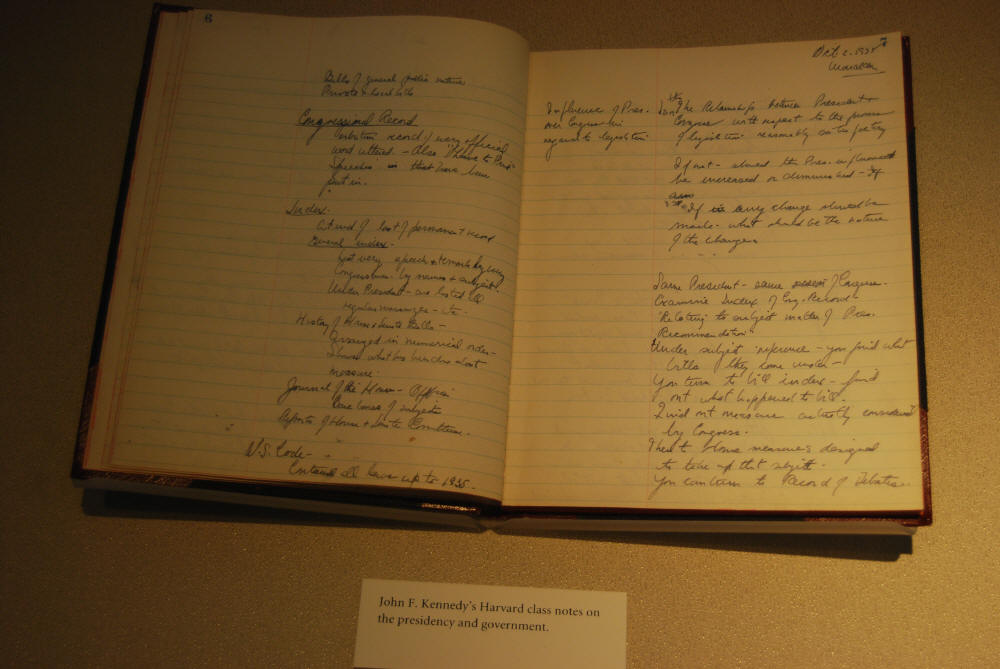 6
Bills of general public nature
Private & local bills
Congressional Record
Verbatim record of every official
word uttered. - Also "Leave to Print"
Speeches - that have been
put in.
Index.
At end of last of permanent record
General index.
Get every speech & remark by every
Congressman by names & subject.
Under President - are listed all
regular messages - etc.
History of House & Senate Bills -
Arranged in numerical order -
Shows what has been done about
measure.
Journal of the House - Official
of subjects
Reports of House & Senate Committees.
U.S. Code -
Contained all laws up to 1935.
7
Oct 2. 1938
Influence of Pres.
over Congress in
regard to legislation
The Relationship between President &
Congress with respect to the process
of legislation reasonably satisfactory
If not - should the Pres. influence
be increased or diminished - If
If any change should be
made - what should be the nature
of the change
Same President - same session of Congress.
Examine Index of Cong. Record -
"Relating to subject matter of Pres.
Recommendation"
Under subject reference - you find what
bills they come under -
You turn to bill index - find
out what happened to bill.
Find out measure actually considered
by Congress.
those measures designed
to take up that subject.
You can turn to Record of Debates.
John F. Kennedy's Harvard class notes on
the presidency and government.